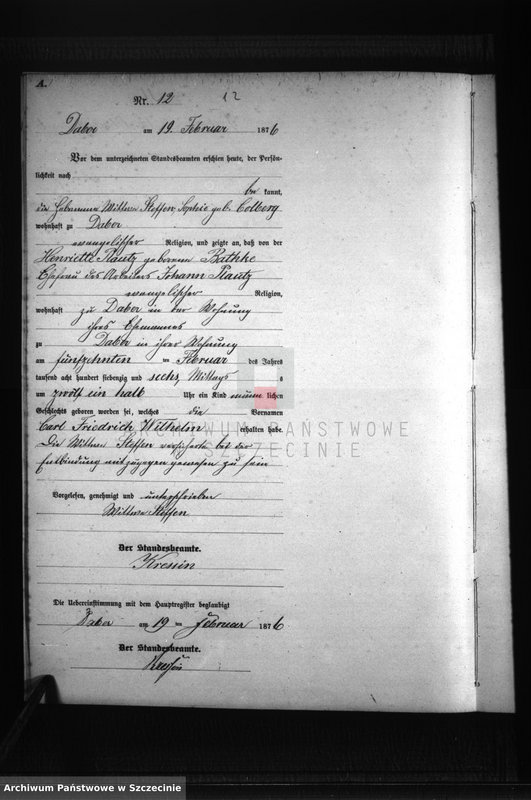 A.
Nr. 12 12
Daber am 19. Februar 1876
Vor dem unterzeichneten Standesbeamten erschien heute, der Persön-
lichkeit nach
be kannt,
die Hebamme Wittwe Steffen, Sophie geb. Colberg
wohnhaft zu Daber
evangelischer Religion, und zeigte an, daß von der
Henriette Plautz geborenen Bathke
Ehefrau des Arbeiters Johann Plautz
evangelischer Religion,
wohnhaft zu Daber in der Wohnung
ihres Ehemannes
zu Daber in ihrer Wohnung
am fünfzehnten ten Februar des Jahres
tausend acht hundert siebenzig und sechs, Mittags s
um zwölf ein halb Uhr ein Kind männ lichen
Geschlechts geboren worden sei, welches die Vornamen
Carl Friedrich Wilhelm erhalten habe.
Die Wittwe Steffen versicherte bei der
Entbindung mit zugegen gewesen zu sein
ARCHIWUM PAŃSTWOWE
SZCZECINIE
Vorgelesen, genehmigt und unterschrieben
Wittwe Steffen
Der Standesbeamte.
Die Uebereinstimmung mit dem Hauptregister beglaubigt
Daber am 19 ten Februar 1876
Der Standesbeamte.
Archiwum Państwowe w Szczecinie